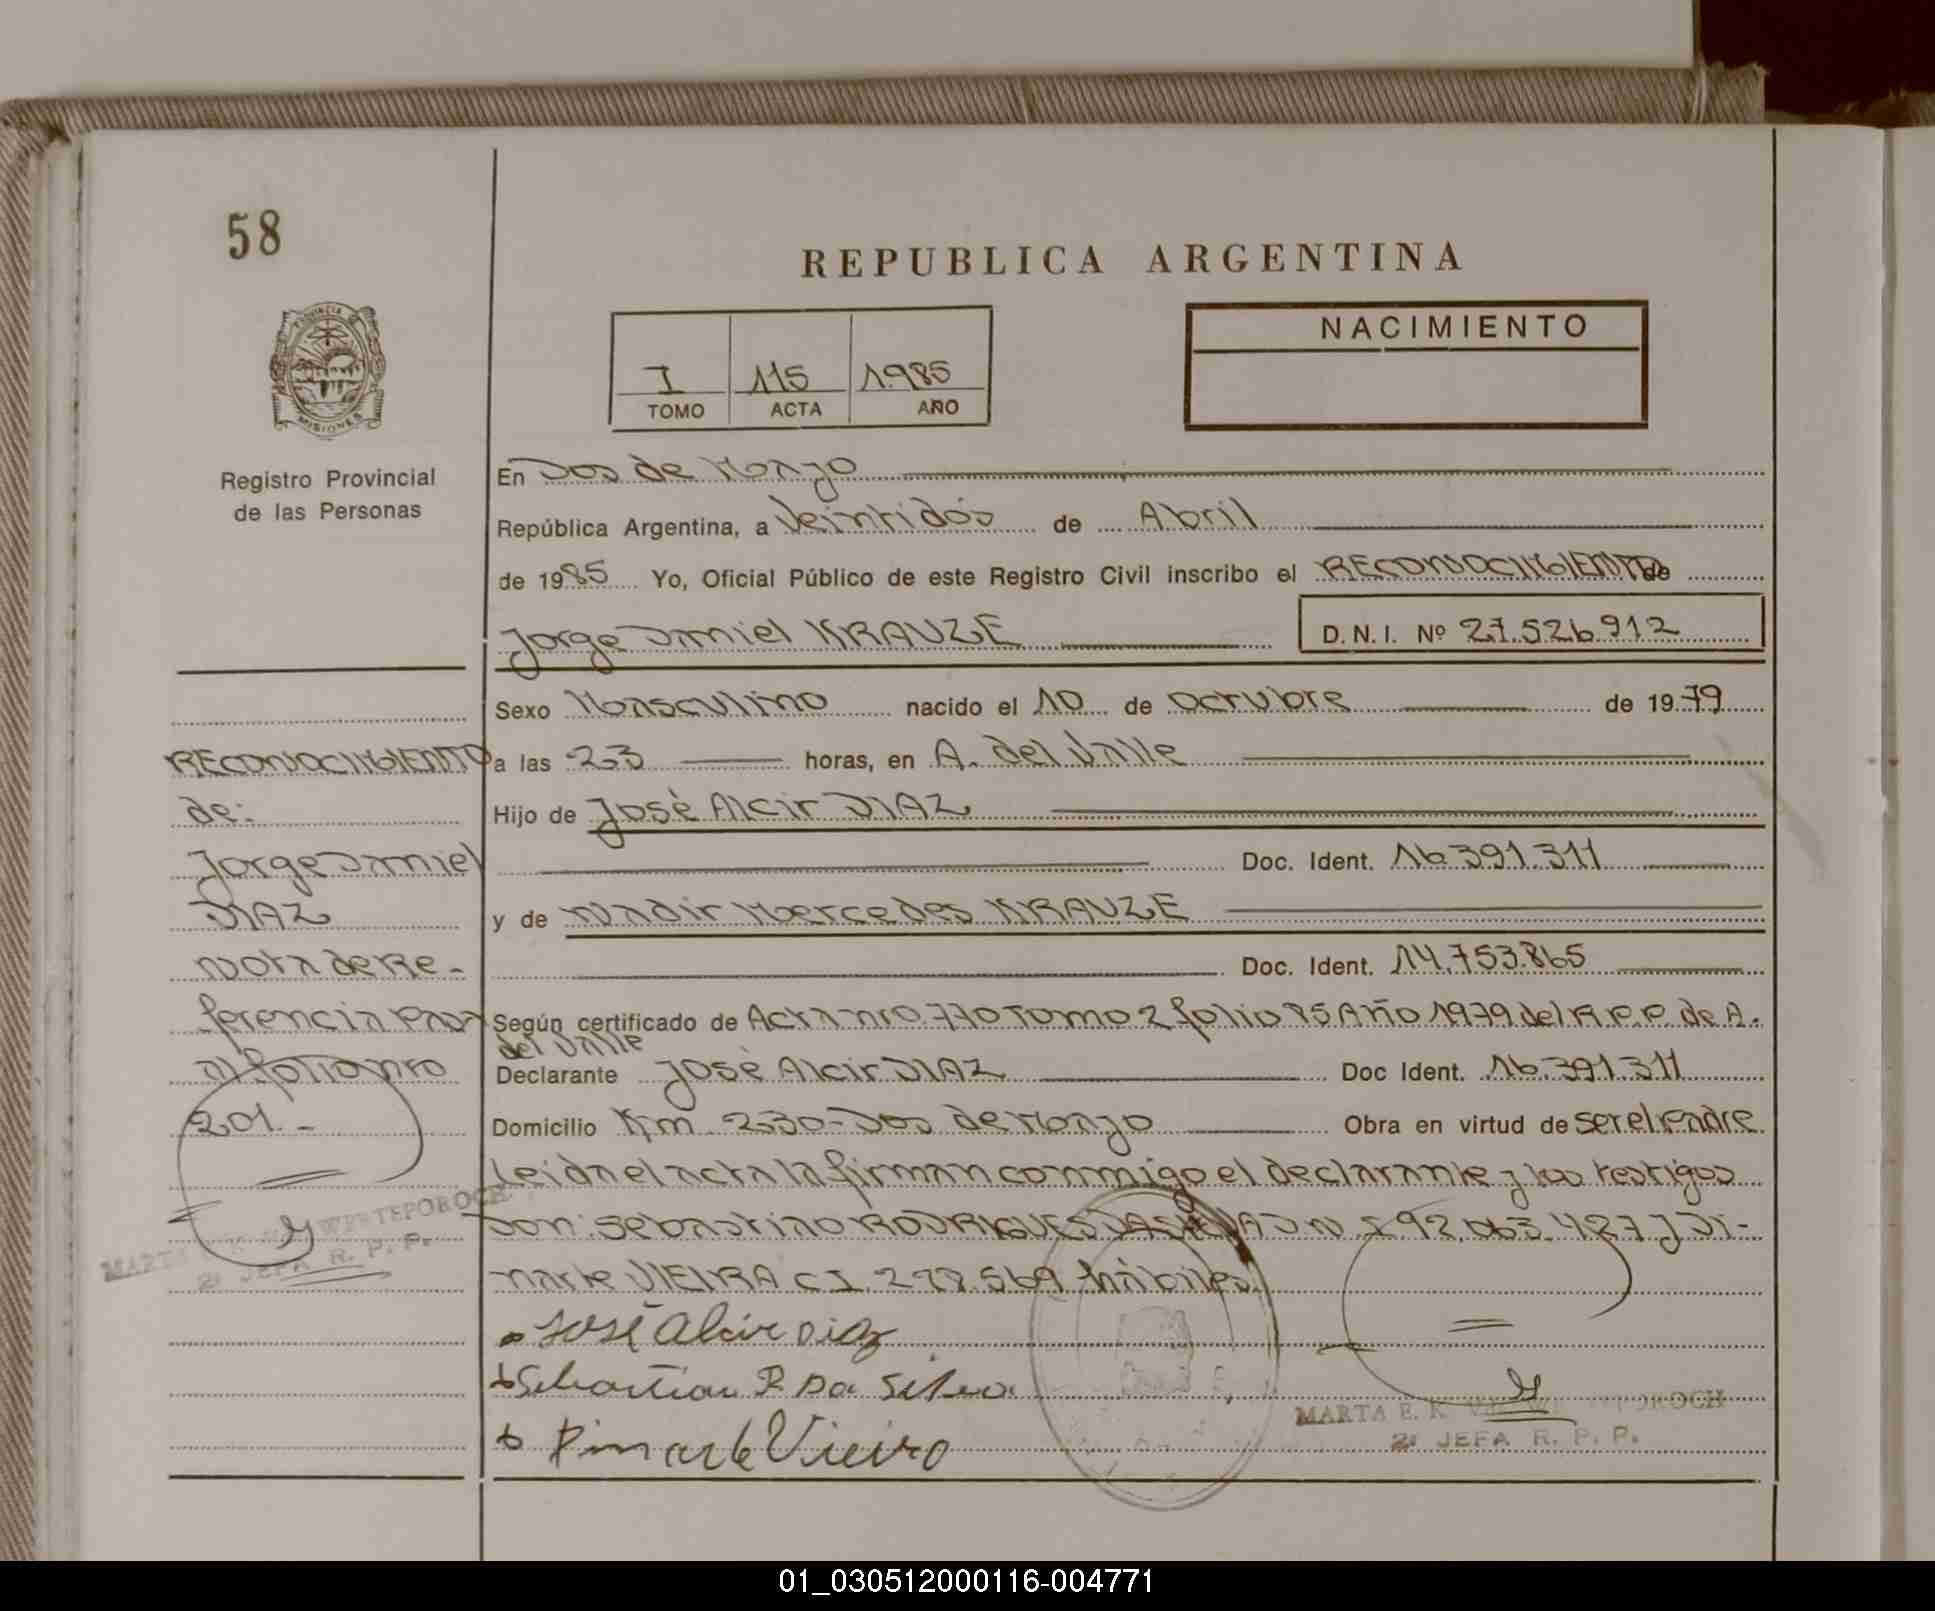 58
REPUBLICA ARGENTINA
PROVINCIA DE MISIONES
Registro Provincial
de las Personas
I 115 1985
TOMO ACTA AÑO
NACIMIENTO
En Dos de Mayo
República Argentina, a Veintidós de Abril
de 1985 Yo, Oficial Público de este Registro Civil inscribo el RECONOCIMIENTO de
Jorge Daniel KRAUZE D.N.I. Nº 27.526.912
Sexo Masculino nacido el 10 de Octubre de 1979
a las 23 horas, en A. del Valle
Hijo de José Alcir DIAZ
Doc. Ident. 16.391.311
y de Nadir Mercedes KRAUZE
Doc. Ident. 14.753.865
Según certificado de Acta nro. 770 Tomo 2 folio 85 Año 1979 del R.P.P. de A.
del Valle
Declarante José Alcir DIAZ Doc Ident. 16.391.311
Domicilio Km. 230-Dos de Mayo Obra en virtud de ser el padre
Leida el acta la firman conmigo el declarante y los testigos
Don: Sebastiao RODRIGUES DA SILVA D N I 92.063.427 y Di-
marte VIEIRA C I. 278.569 hábiles.
José Alcir Diaz
Sebastiao R Da Silva
Dimarte Vieira
MARTA E. K.
2ª JEFA R. P. P.
RECONOCIMIENTO
de:
Jorge Daniel
DIAZ
Nota de Re-
ferencia pasa
al folio nro
201.-
MARTA
2ª JEFA R. P. P.
01_030512000116-004771